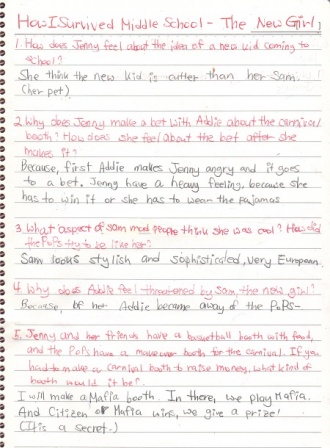 How I Survived Middle School - The New Girl
1. How does Jenny feel about the idea of a new kid coming to
school?
She think the new kid is cutter than her Sam.
(her pet)
2. Why does Jenny make a bet with Addie about the carnival
booth? How does she feel about the bet after she
makes it?
Because, first Addie makes Jenny angry and it goes
to a bet. Jenny have a heavy feeling, because she
has to win it or she has to wear the pajamas
3. What aspect of Sam most people think she was cool? How did
the PoPs try to be like her?
Sam looks stylish and sophisticated, very European.
4. Why does Addie feel threatened by Sam, the new girl?
Because, of her Addie became away of the PoPs-
5. Jenny and her friends have a basketball booth with food,
and the PoPs have a makeover booth for the carnival. If you
had to make a carnival booth to raise money, what kind of
booth would it be?
I will make a Mafia booth. In there, we play Mafia.
And Citizen or Mafia wins, we give a prize!
(It is a secret.)